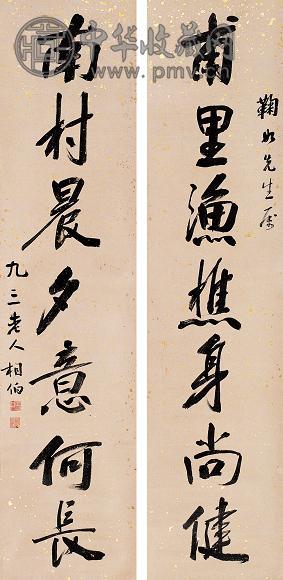 鞠如先生属
甫里渔樵身尚健
南村晨夕意何長
九三老人相伯
中华收藏网
www.pmv.cn